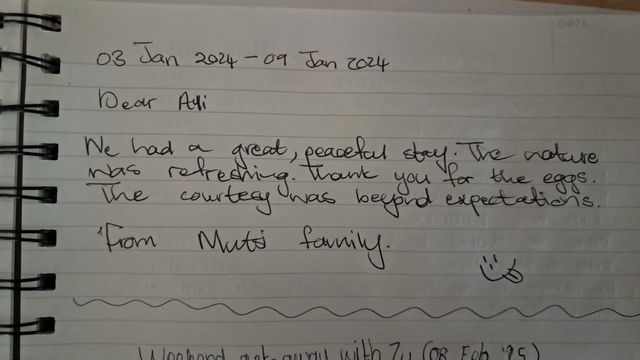 DATE
03 Jan 2024 - 09 Jan 2024
Dear
We had a great, peaceful stay. The nature
was refreshing. Thank you for the eggs.
The courtesy was beyond expectations.
From Mutsi family.
Weekend get-away with Zu (08 Feb '25)